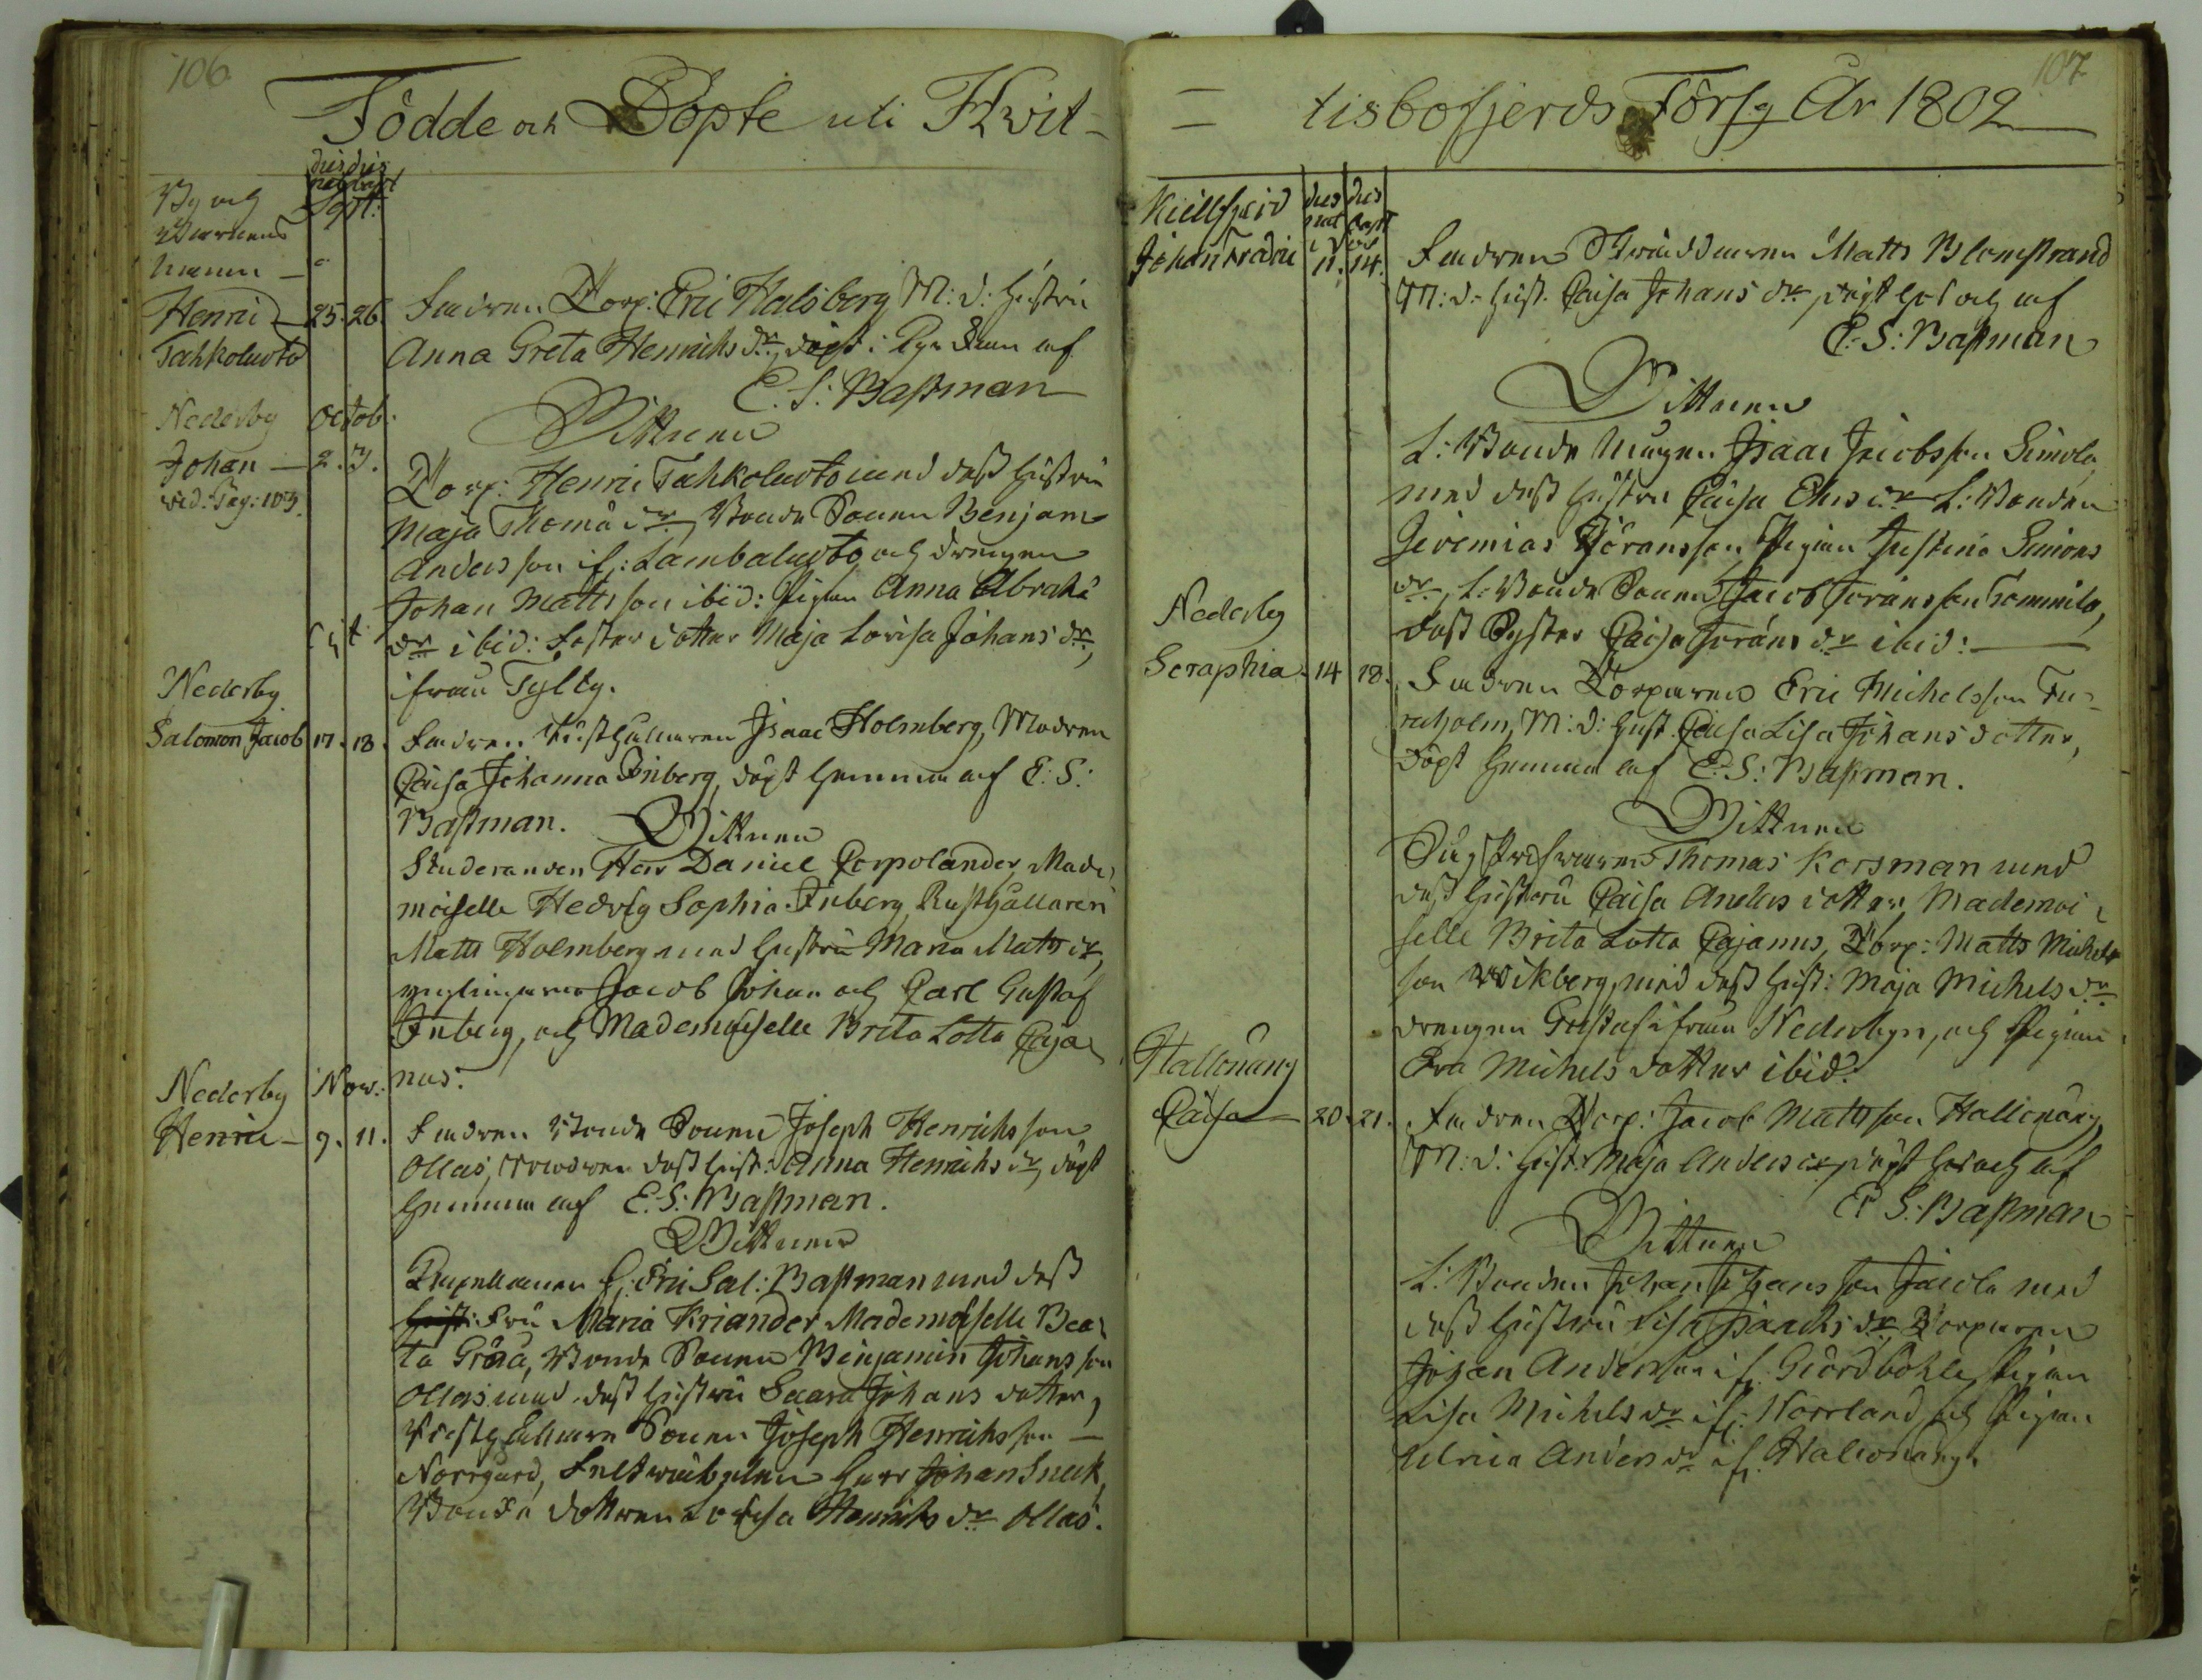 106
Födde och Döpte uti Kvit-
dies dies
nat bapt
By och
Barnens
namn —
Sept:
Henric — 25. 26. Fadren Torp: Eric Halsberg M: d: hustru
Tahkoluoto
Anna Greta Henrichs dr, döpt i af
E. S: Bassman
Nederby Octob.
Vittnen
Johan — 2. 3.
vid. Pag: 103.
Torp: Henric Tahkoluoto med dess hustru
Maja Thomæ dr, Bonde Sonen Benjam
Andersson if: Lambaluoto, och drengen
Johan Mattsson ibid: Pigan Anna Abrahä
dr ibid: Foster dotter Maja Lovisa Johans dr,
ifrån Tylly.
Nederby
Salomon Jacob 17. 18. Fadren Rusthållaren Isaac Holmberg, Modren
Caisa Johanna Inberg, döpt hemma af E: S:
Bassman. Vittnen
Studeranden Herr Daniel Corpolander, Made-
moiselle Hedvig Sophia Inberg, Rusthållaren
Matts Holmberg med hustru Maria Matts dr,
ynglingarne Jacob Johan och Carl Gustaf
Inberg, och Mademoiselle Brita Lotta Caja-
nus.
Nederby Nov:
Henric — 9. 11. Fadren Bonde Sonen Joseph Henrichsson
Ollas, Modren dess hust: Anna Henrichs dr, döpt
hemma af E. S: Bassman.
Vittnen
Capellanen H: Eric Sal: Bassman med dess
hust: Fru Maria Kriander, Mademoiselle Bea-
ta Gröna, Bonde Sonen Benjamin Johansson
Ollas med dess hustru Saara Johans dotter,
Sonen Joseph Henrichsson —
Norrgård, Herr Johan Sneck,
Bonde dottren Lovisa Henrichs dr Ollas.
107
= tisbofjerds Förs:g År 1802
Kiellfjerd dies dies
nat bapt
Johan Fredric 11. 14. Fadren Matts Blomstrand
M: d: hust. Caisa Johans dr, döpt här och af
E. S: Bassman
Vittnen
L: Bonde Mågen Isaac Jacobsson Simola
med dess hustru Caisa Ehrs dr L: Bonden
Jeremias Göransson, Pigan Justina Simons
dr, L: Bonde Sonen Jacob Göransson Tommila,
dess Syster Caisa Görans dr ibid: —
Nederby
Seraphia 14 18. Fadren Torparen Eric Michelsson Fu-
ruholm, M: d: hust. Caisa Lisa Johans dotter,
döpt hemma af E: S: Bassman.
Vittnen
Thomas Korsman med
dess hustru Caisa Anders dotter, Mademoi-
selle Brita Lotta Cajanus, Torp: Matts Michels-
son Wikberg, med dess hust: Maja Michels dr
drengen Gustaf ifrån Nederbyn, och Pigan
Eva Michels dotter ibid:
Hallonäng
Caisa — 20. 21. Fadren Torp: Jacob Mattsson Hallonäng,
M: d: hust: Maja Anders dr, döpt här och af
E S: Bassman
Vittnen
L: Bonden Johan Johansson Jacola med
dess hustru Lisa Isaachs dr Torparen
Johan Andersson if: Giördböhle, Pigan
Lisa Michels dr if: Norrland, och Pigan
Ulrica Anders dr if: Hallonäng.